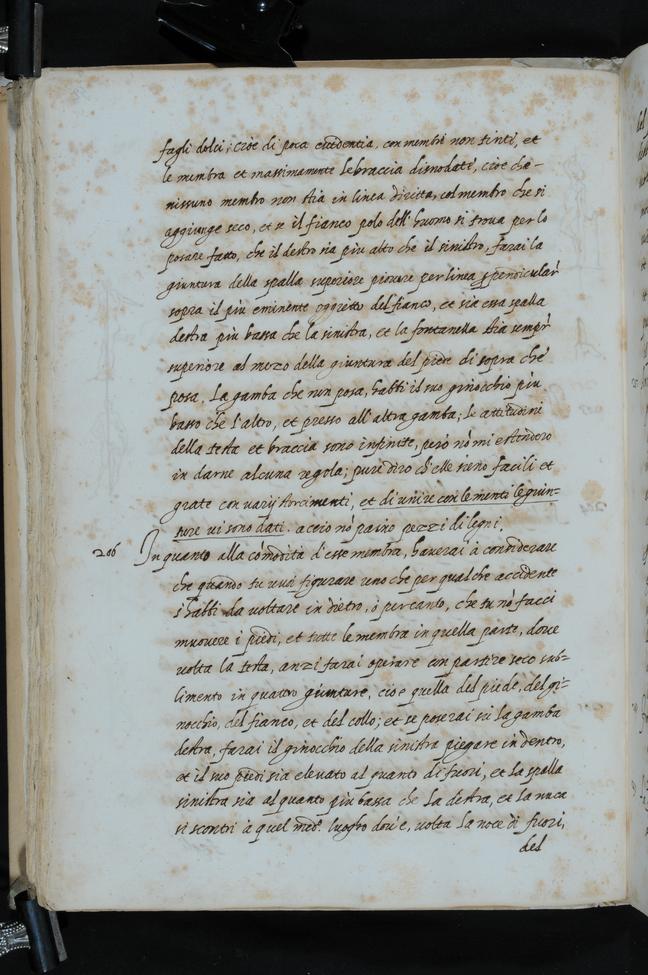 fagli dolci, cioè di poca euidentia, con membri non tinti, et
le membra et massimamente le braccia disnodati, cioè che
nissuno membro non stia in linea diritta, col membro che si
aggiunge seco, et se il fianco polo dell'huomo si troua per lo
posare fatto, che il destro sia piu alto che il sinistro, farai la
giuntura della spalla superiore piouere per linea ppendicular
sopra il più eminente oggetto del fianco, et sia essa spalla
destra più bassa che la sinistra, et la fontanella stia sempr
superiore al mezo della giuntura del piede di sopra che
posa, La gamba che non posa, habbi il suo ginocchio più
basso che l'altro, et presso all'altra gamba; le attitudini
della testa et braccia sono infinite, però nō mi estendero
in darne alcuna regola; pure dirò ch'elle sieno facili et
grate con varij storcimenti, et di unire con le menti le giun=
ture ui sono dati. acciò nō paino pezzi di legni,
206 In quanto alla cōmodità d'esse membra, hauerai à considerare
che quando tu uuoi figurare uno che per qualche accidente
s'habbi da uoltare in dietro, ò per canto, che tu nō facci
muouere i piedi, et tutte le membra in quella parte, doue
uolta la testa, anzi farai operare con partire seco suo=
limento in quattro giunture, cioè quella del piede, del gi=
nocchio, del fianco, et del collo; et se poserai sù la gamba
destra, farai il ginocchio della sinistra piegare in dentro,
et il suo piedi sia eleuato alquanto di fuori, et la spalla
sinistra sia alquanto più bassa che la destra, et la nuca
si scontri à quel med.º luogho dou'è, uolta la noce di fuori,
del